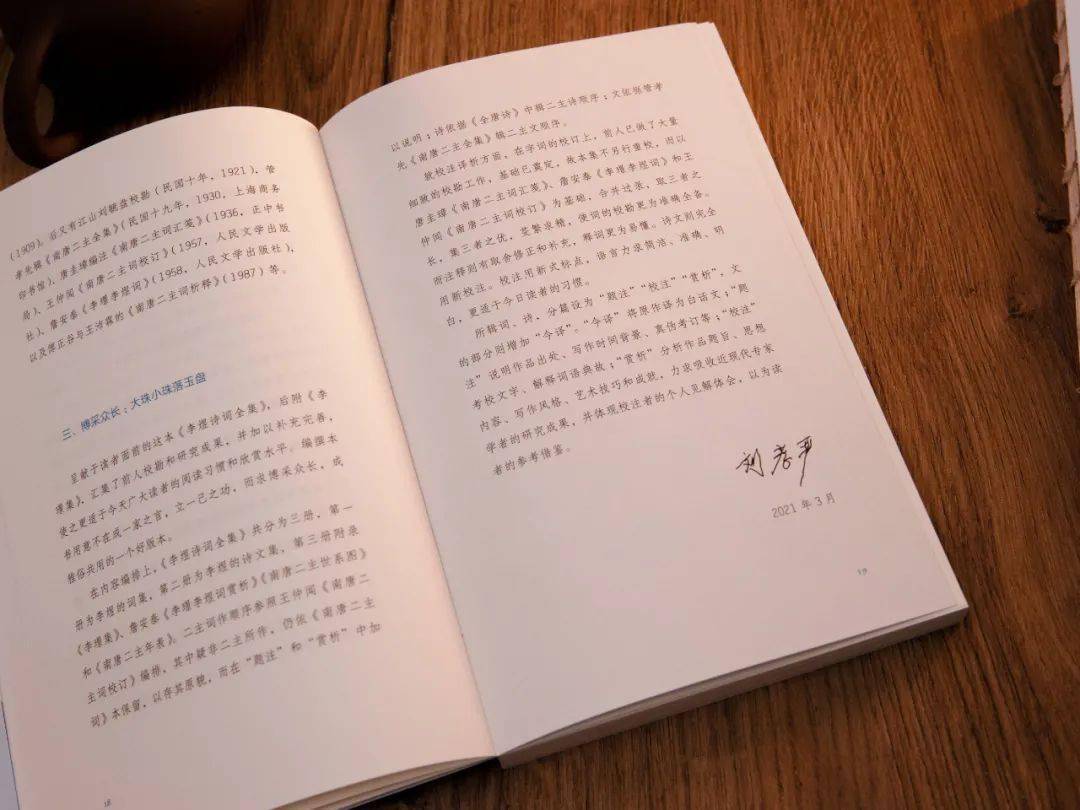 (1909)。后又有江山刘毓盘校勘(民国十年，1921)，管
孝先辑《南唐二主全集》(民国十九年，1930，上海商务
印书馆)，唐圭璋编注《南唐二主词汇笺》(1936，正中书
局)，王仲闻《南唐二主词校订》(1957，人民文学出版
社)，詹安泰《李璟李煜词》(1958，人民文学出版社)，
以及傅正谷与王沛霖的《南唐二主词析释》(1987)等。
三、博采众长：大珠小珠落玉盘
呈献于读者面前的这本《李煜诗词全集》，后附《李
璟集》，汇集了前人校勘和研究成果，并加以补充完善，
使之更适于今天广大读者的阅读习惯和欣赏水平。编撰本
书用意不在成一家之言，立一己之功，而求博采众长，成
雅俗共用的一个好版本。
在内容编排上，《李煜诗词全集》共分为三册，第一
册为李煜的词集，第二册为李煜的诗文集，第三册附录
《李璟集》、詹安泰《李璟李煜词赏析》《南唐二主世系图》
和《南唐二主年表》。二主词作顺序参照王仲闻《南唐二
主词校订》编排，其中疑非二主所作，仍依《南唐二主
词》本保留，以存其原貌，而在“题注”和“赏析”中加
18
以说明；诗依据《全唐诗》中辑二主诗顺序；文依据管孝
先《南唐二主全集》辑二主文顺序。
就校注详析方面，在字词的校订上，前人已做了大量
细致的校勘工作，基础已奠定，故本集不另行重校，而以
唐圭璋《南唐二主词汇笺》、詹安泰《李璟李煜词》和王
仲闻《南唐二主词校订》为基础，合并过录，取三者之
长，集三者之优，芟繁求精，使词的校勘更为准确全备。
所注释则有取舍修正和补充，释词更为易懂。诗文则完全
用新校注。校注用新式标点，语言力求简洁、准确、明
白，更适于今日读者的习惯。
所辑词、诗，分篇设为“题注”“校注”“赏析”，文
的部分则增加“今译”。“今译”将原作译为白话文；“题
注”说明作品出处、写作时间背景、真伪考订等；“校注”
考校文字、解释词语典故；“赏析”分析作品题旨、思想
内容、写作风格、艺术技巧和成就，力求吸收近现代专家
学者的研究成果，并体现校注者的个人见解体会，以为读
者的参考借鉴。
刘孝严
2021年3月
19